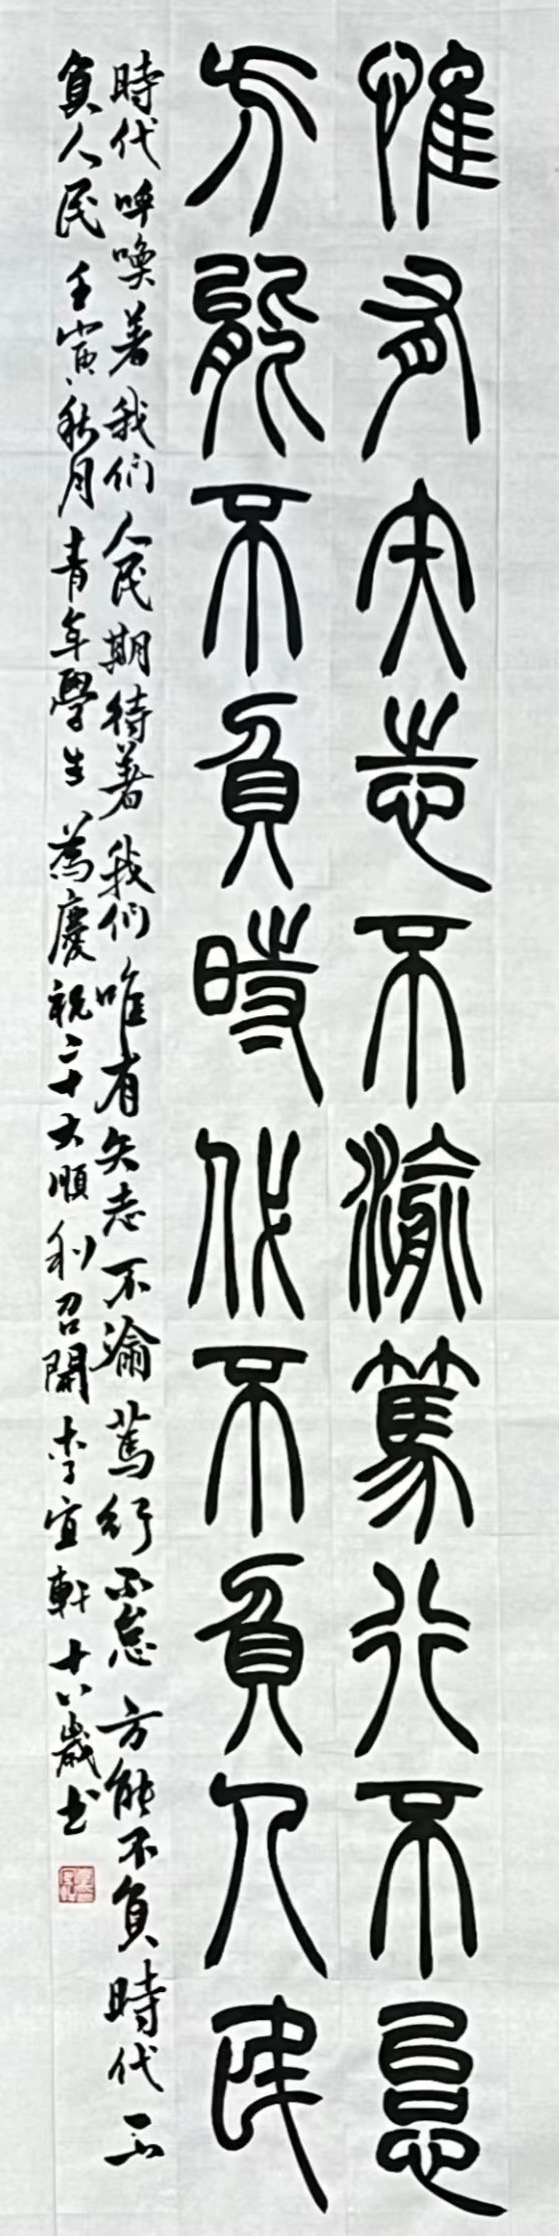 惟有矢志不渝篤行不怠
方能不負時代不負人民
時代呼喚著我们人民期待著我们唯有矢志不渝篤行不怠方能不負時代不
負人民壬寅秋月青年學生為慶祝二十大順利召開李宜軒十八歲书